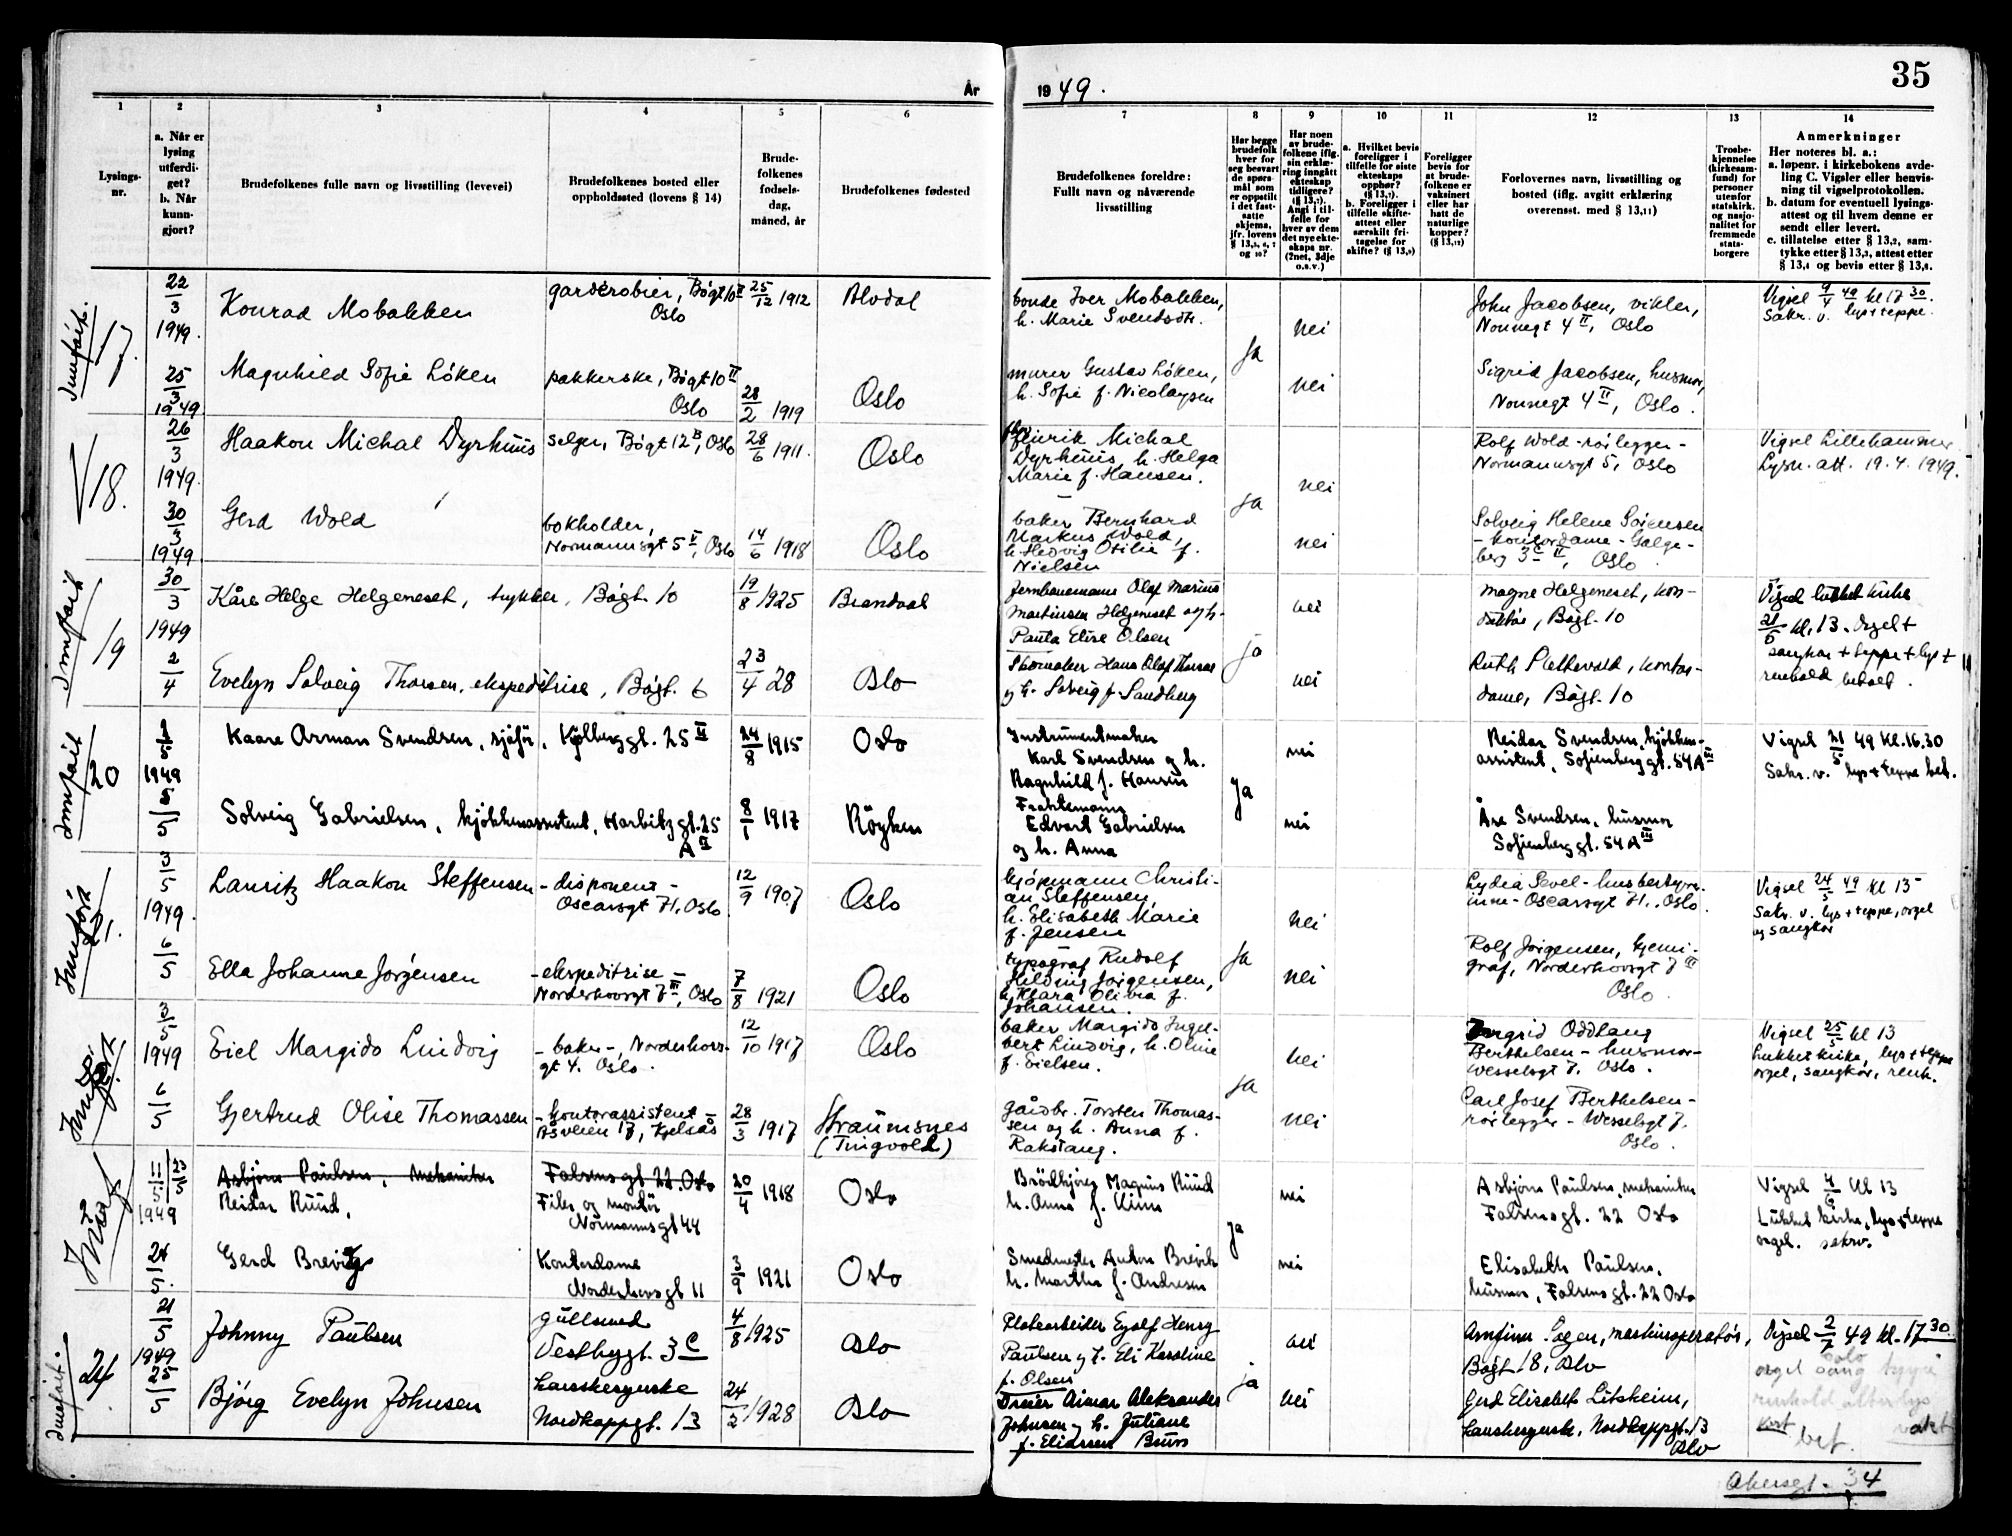 35
År
19 49.
1
2
3
4
5
6
7
8
9
10
11
12
13
14
Lysings-
nr.
a. Når er
lysing
utferdi-
get?
b. Når
kunn-
gjort?
Brudefolkenes fulle navn og livsstilling (levevei)
Brudefolkenes bosted eller
oppholdssted (lovens § 14)
Brude-
folkenes
fødsels-
dag,
måned, år
Brudefolkenes fødested
Brudefolkenes foreldre:
Fullt navn og nåværende
livsstilling
Har begge
brudefolk
hver for
seg besvart
de spørs-
mål som
er oppstilt
i det fast-
satte
skjema,
jfr. lovens
og 10?
Har noen
av brude-
folkene iflg.
sin erklæ-
ring inngått
ekteskap
tidligere?
Angi i til-
felle for
hver av dem
det nye ekte-
skaps nr.
(2net, 3dje
o.s.v.)
a. Hvilket bevis
foreligger i
tilfelle for siste
ekteskaps
opphør?
b. Foreligger i
tilfelle skifte-
attest eller
særskilt fri-
tagelse for
skifte? (§ 13,9)
Foreligger
bevis for
at brude-
folkene er
vaksinert
eller har
hatt de
naturlige
kopper?
(§ 13,12)
Forlovernes navn, livsstilling og
bosted (iflg. avgitt erklæring
overensst. med § 13,11)
Trosbe-
kjennelse
(kirkesam-
fund) for
personer
utenfor
statskirk.
og nasjo-
nalitet for
fremmede
stats-
borgere
Anmerkninger
Her noteres bl. a.:
a. løpenr. i kirkebokens avde-
ling C. Vigsler eller henvis-
ning til vigselprotokollen.
b. datum for eventuell lysings-
attest og til hvem denne er
sendt eller levert.
c. tillatelse etter § 13,2, sam-
tykke etter § 13,3, attest etter
§ 13,4 og bevis etter § 13,8.
22/3 1949.
Konrad Mobakken
garderobier, Bøgt 10 II
Oslo
25/12 1912
Alvdal
bonde Iver Mobakken,
h. Marie Svendsdtr.
Ja
nei
John Jacobsen, vikler,
Nonnegt 4 II, Oslo
Vigsel 9/4 49 kl 17 30.
Sakr. v. lys + teppe.
25/3 1949
Magnhild Sofie Løken
pakkerske, Bøgt 10 II
Oslo
28/2 1919
Oslo
murer Gustav Løken,
h. Sofie f. Nicolaysen
nei
Sigrid Jacobsen, husmor,
Nonnegt 4 II, Oslo.
18.
26/3 1949.
Haakon Michal Dyrhuus
selger, Bøgt 12 B, Oslo
28/6 1911.
Oslo
Henrik Michal
Dyrhuus, h. Helga
Marie f. Hansen.
ja
nei
Rolf Wold - rørlegger -
Normannsgt 5, Oslo
Vigsel Lillehammer
Lysn. att. 19.4.1949.
30/3 1949
Gerd Wold
bokholder,
Normannsgt 5 II, Oslo
14/6 1918
Oslo
baker Bernhard
Markus Wold,
h. Hedvig Otilie f.
Nielsen
nei
Solveig Helene Sørensen
- kontordame - Galge-
berg 3 C II, Oslo
19
30/3 1949
Kåre Helge Helgeneset, trykker, Bøgt. 10
19/8 1925
Brandval
Jernbanemann Olaf Marius
Martinsen Helgeneset og h.
Paula Elise Olsen
ja
nei
Magne Helgeneset, kon-
duktør, Bøgt. 10
Vigsel lukket kirke
21/5 kl. 13. Orgel +
sangkor + teppe + lys +
renhold betalt.
2/4
Evelyn Solveig Thorsen, ekspeditrise, Bøgt. 6
23/4 28
Oslo
Skomaker Hans Olaf Thorsen
og h. Solveig f. Sandberg
nei
Ruth Slettevold, kontor-
dame, Bøgt. 10
20
1949
Kaare Arman Svendsen, sjåfør, Kjølberggt. 25 II
24/8 1915
Oslo
Instrumentmaker
Karl Svendsen og h.
Ragnhild f. Hansen
Ja
nei
Reidar Svendsen, kjøkken-
assistent, Sofienberggt. 54 A III
Vigsel 21/5 49 kl. 16.30
Sakr. v. lys + teppe bet.
5/5
Solveig Gabrielsen, kjøkkenassistent, Harbitzgt. 25
A II
8/1 1917
Røyken
Fraktemann
Edvart Gabrielsen
og h. Anna
nei
Åse Svendsen, husmor
Sofienberggt. 54 A III
Innført
21.
3/5 1949.
Lauritz Haakon Steffensen
- disponent -
Oscarsgt 71, Oslo
12/9 1907
Oslo
kjøpmann Christi-
an Steffensen,
h. Elisabeth Marie
f. Jensen
Ja
nei
Lydia Sevel - husbestyre-
inne - Oscarsgt 71, Oslo.
Vigsel 24/5 49 kl 15
Sakr. v. lys + teppe, orgel
og sangkor
6/5
Ella Johanne Jørgensen
- ekspeditrise -
Norderhovsgt 7 III, Oslo
7/8 1921
Oslo
typograf Rudolf
Hilding Jørgensen,
h. Klara Olivia f.
Johansen.
nei
Rolf Jørgensen, kjemi-
graf, Norderhovsgt 7 III
Oslo.
3/5 1949
Eiel Margido Lindvig
- baker -, Norderhovs-
gt 4. Oslo.
12/10 1917
Oslo
baker Margido Ingel-
bert Lindvig, h. Oline
f. Eielsen.
Ja
nei
Ingrid Oddlaug
Berthelsen - husmor -
Wesselsgt 7, Oslo.
Vigsel 25/5 kl 13
Lukket kirke, lys + teppe
orgel, sangkor, renh.
6/5
Gjertrud Olise Thomassen
- kontorassistent -
Åsveien 17, Kjelsås
28/3 1917
Straumsnes
(Tingvold)
gårdbr. Torsten Thomas-
sen og h. Anna f.
Rakstang.
nei
Carl Josef Berthelsen -
rørlegger - Wesselsgt 7.
Oslo.
11/5 23/5 1949
Asbjørn Paulsen, mekaniker
Falsensgt 22. Oslo
Reidar Ruud,
Filer og montør
Normannsgt 44
20/4 1918
Oslo
Brødkjører Magnus Ruud
h. Anna f. Kinn
ja
nei
Asbjørn Paulsen, mekaniker
Falsensgt. 22 Oslo
Vigsel 4/6 kl 13
Lukket kirke, lys + teppe
orgel. sakr.
24/5.
Gerd Brevig
Kontordame
Norderhovsgt 11
3/9 1921
Oslo
Smedmester Anton Brevik
h. Martha f. Andresen
nei
Elisabeth Paulsen,
husmor, Falsensgt. 22 Oslo
24.
21/5 1949
Johnny Paulsen
gullsmed
Vestbygt. 3 C
4/8 1925
Oslo
Platearbeider Eyolf Henry
Paulsen og h. Eli Karoline
f. Olsen
ja
nei
Arnfinn Engen, maskinoperatør,
Bøgt 18, Oslo
Vigsel 2/7 49 kl. 17 30
orgel sang
kort
bet.
25/5
Bjørg Evelyn Johnsen
Nordkappgt. 13
24/2 1928
Oslo
Dreier Aimar Aleksander
Johnsen og h. Juliane
f. Eliassen Bruun
nei
Gerd Elisabeth Litsheim,
Nordkappgt. 13
Oslo
Akersgt. 34